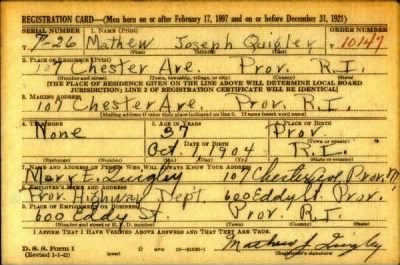 REGISTRATION CARD—(Men born on or after February 17, 1897 and on or before December 31, 1921)
SERIAL NUMBER 1. NAME (Print) ORDER NUMBER
T-26 Mathew Joseph Quigley 10147
(First) (Middle) (Last)
2. PLACE OF RESIDENCE (Print)
107 Chester Ave. Prov. R.I.
(Number and street) (Town, township, village, or city) (County) (State)
[THE PLACE OF RESIDENCE GIVEN ON THE LINE ABOVE WILL DETERMINE LOCAL BOARD
JURISDICTION; LINE 2 OF REGISTRATION CERTIFICATE WILL BE IDENTICAL]
3. MAILING ADDRESS
107 Chester Ave. Prov. R.I.
[Mailing address if other than place indicated on line 2. If same insert word same]
4. TELEPHONE 5. AGE IN YEARS 6. PLACE OF BIRTH
None 37 Prov.
DATE OF BIRTH (Town or county)
Oct 1904 R.I.
(Exchange) (Number) (Mo.) (Day) (Yr.) (State or country)
7. NAME AND ADDRESS OF PERSON WHO WILL ALWAYS KNOW YOUR ADDRESS
Mary E. Quigley 107 Chester Ave. Prov.
8. EMPLOYER'S NAME AND ADDRESS
Prov. Highway Dept. 600 Eddy St. Prov. R.I.
9. PLACE OF EMPLOYMENT OR BUSINESS
600 Eddy St. Prov. R.I.
(Number and street or R. F. D. number) (Town) (County) (State)
I AFFIRM THAT I HAVE VERIFIED ABOVE ANSWERS AND THAT THEY ARE TRUE.
D. S. S. Form 1 GPO 16—21630-1 Mathew J. Quigley
(Revised 1-1-42) (Registrant's signature)